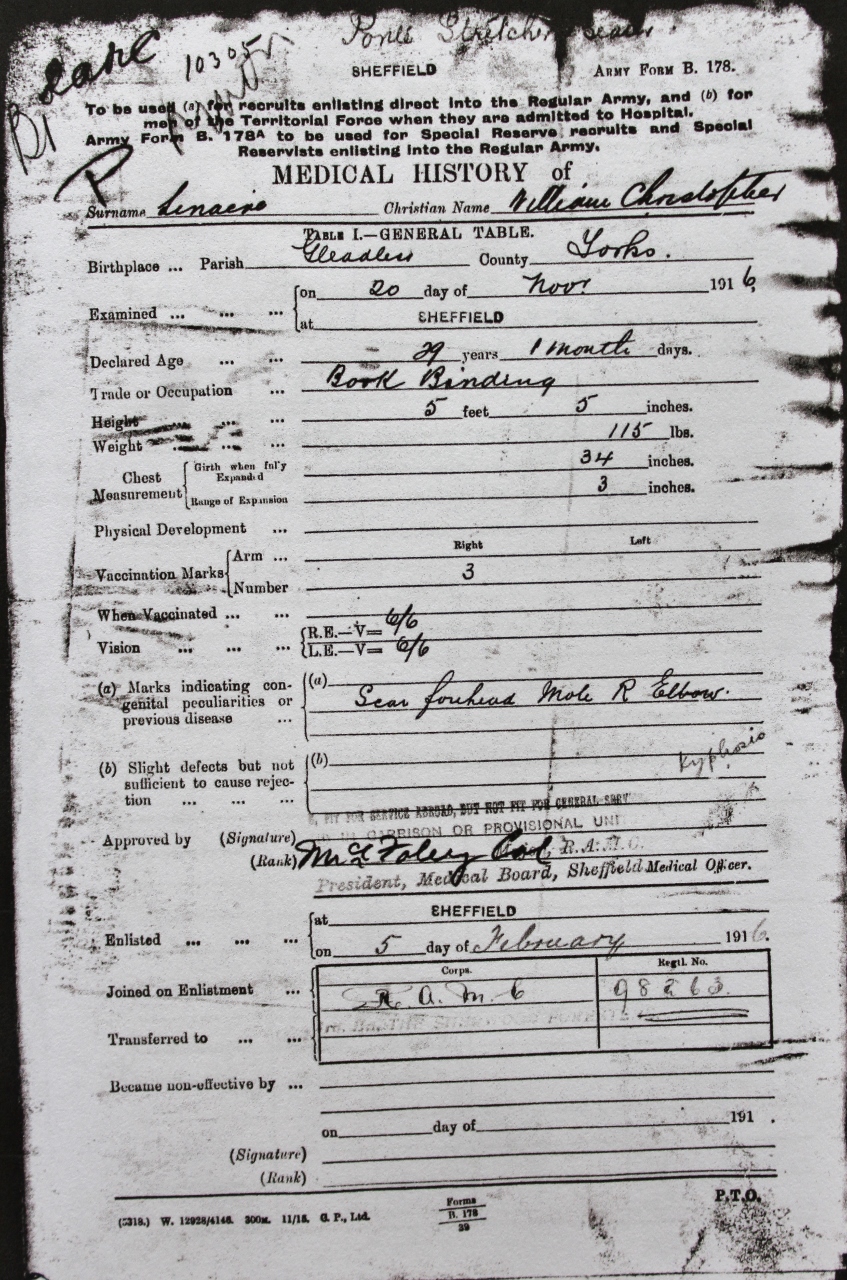 Stretcher
10305
SHEFFIELD ARMY FORM B. 178.
To be used (a) for recruits enlisting direct into the Regular Army, and (b) for
men of the Territorial Force when they are admitted to Hospital.
Army Form B. 178A to be used for Special Reserve recruits and Special
Reservists enlisting into the Regular Army.
B1
P
MEDICAL HISTORY of
Surname Linacre Christian Name William Christopher
TABLE I.—GENERAL TABLE.
Birthplace ... Parish Gleadless County Yorks.
Examined ... ... ... on 20 day of Nov. 1916
at SHEFFIELD
Declared Age ... ... 29 years 1 month days.
Trade or Occupation ... Book Binding
Height ... ... 5 feet 5 inches.
Weight ... ... 115 lbs.
Chest Measurement Girth when fully Expanded 34 inches.
Range of Expansion 3 inches.
Physical Development ...
Right Left
Vaccination Marks Arm ...
Number 3
When Vaccinated ... ...
Vision ... ... ... R.E.—V= 6/6
L.E.—V= 6/6
(a) Marks indicating con-
genital peculiarities or
previous disease ...
(a) Scar forehead Mole R Elbow.
(b) Slight defects but not
sufficient to cause rejec-
tion ... ... ...
(b) Kyphosis
FIT FOR SERVICE ABROAD, BUT NOT FIT FOR GENERAL SERV
IN GARRISON OR PROVISIONAL UNI
Approved by (Signature)
(Rank) R.A.M.C.
President, Medical Board, Sheffield Medical Officer.
Enlisted ... ... ... at SHEFFIELD
on 5 day of February 1916.
Corps. Regtl. No.
Joined on Enlistment ... R. A. M. C 98263
Transferred to ... ...
Became non-effective by ...
on day of 191 .
(Signature)
(Rank)
P.T.O.
(5318.) W. 12928/4146. 300M. 11/15. G. P., Ltd. Forms
B. 178
39